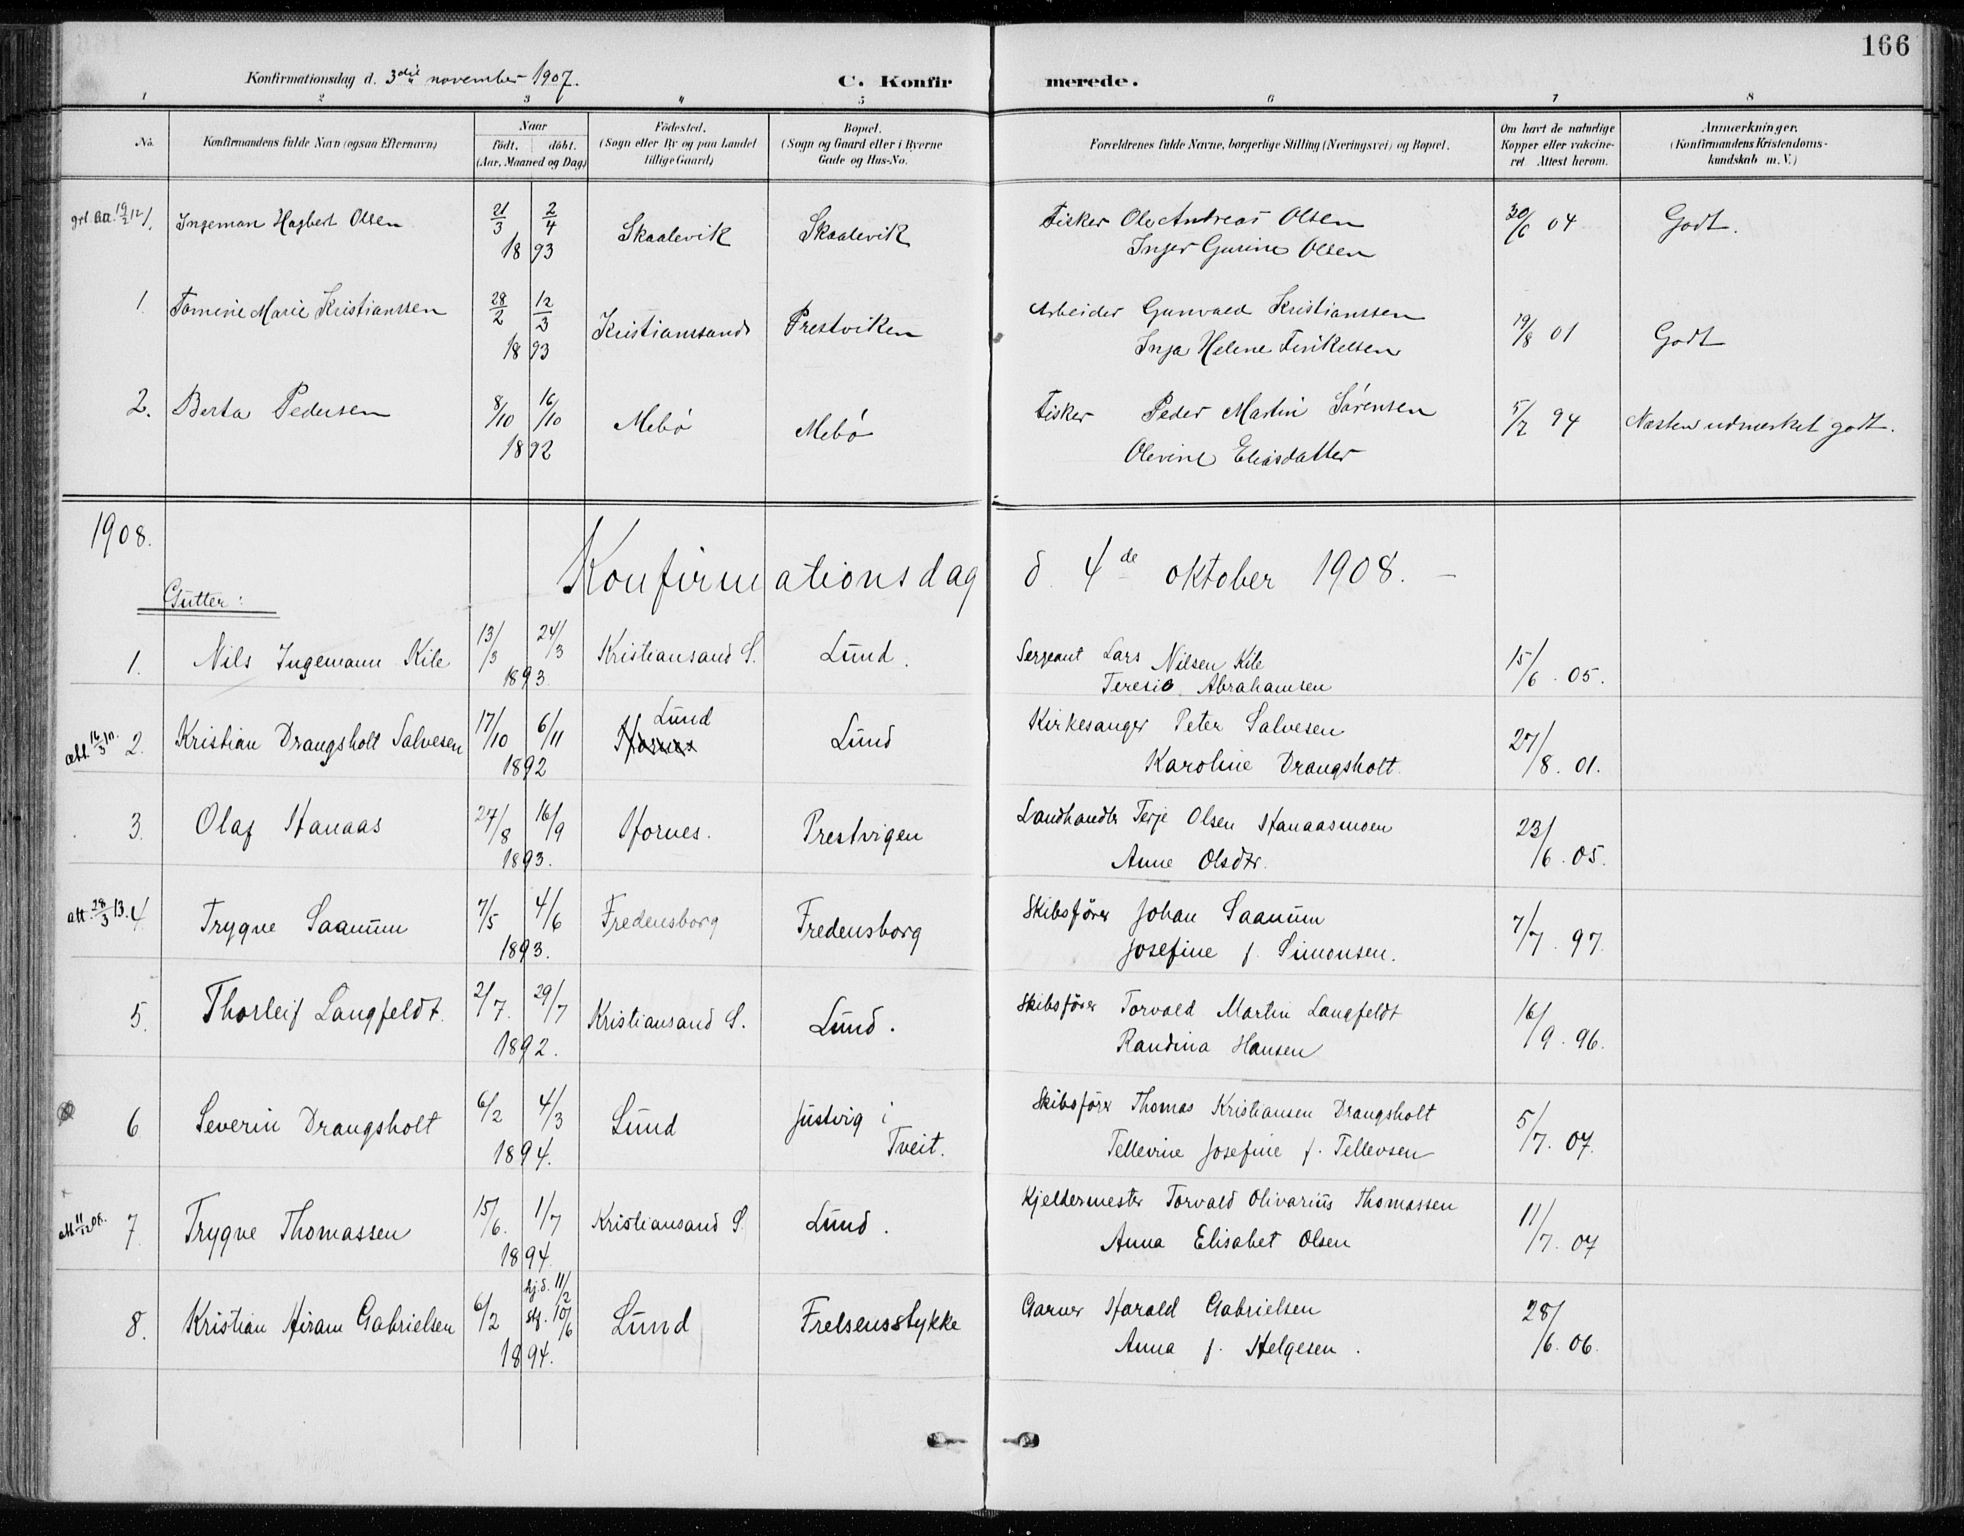 166
Konfirmationsdag d. 3die november 1907. C. Konfirmerede.
1 2 3 4 5 6 7 8
No. Konfirmandens fulde Navn (ogsaa Efternavn) Naar født. døbt. (Aar, Maaned og Dag) Fødested. (Sogn eller By og paa Landet tillige Gaard) Bopæl. (Sogn og Gaard eller i Byerne Gade og Hus-No. Forældrenes fulde Navne, borgerlige Stilling (Næringsvei) og Bopæl. Om havt de naturlige Kopper eller vakcineret Attest herom. Anmærkninger. (Konfirmandens Kristendomskundskab m. V.)
att. 19/2 12 1. Ingeman Hagbert Olsen 21/3 2/4 Skaalevik Skaalevik Fisker Ole Andreas Olsen 30/6 04 Godt.
1893 Inger Gurine Olsen
1. Tomine Marie Kristianssen 28/2 12/3 Kristianssand Prestviken Arbeider Gunvald Kristianssen 19/8 01 Godt
1893 Inga Helene
2. Berta Pedersen 8/10 16/10 Mebø Mebø Fisker Peder Martin Sørensen 5/7 94 Næsten udmerket godt.
1892 Olevine Eliasdatter
1908.
Konfirmationsdag d. 4de oktober 1908. –
Gutter:
1. Nils Ingemann Kile 13/3 24/3 Kristiansand S. Lund. Sergeant Lars Nilsen Kile 15/6. 05.
1893. Teresie Abrahamsen
att. 16/3 2. Kristian Drangsholt Salvesen 17/10 6/11 Lund Lund Kirkesanger Peter Salvesen 27/8. 01.
1892 Karoline Drangsholt.
3. Olaf Hanaas 27/8 16/9 Hornes. Prestvigen Landhandler Terje Olsen Hanaasmoen 23/6. 05.
1893. Anne Olsdtr.
att. 28/3 13. 4. Trygve Saanum 7/5 4/6 Fredensborg Fredensborg Skibsfører Johan Saanum 7/7. 97.
1893. Josefine f. Simonsen.
5. Thorleif Langfeldt. 2/7. 29/7 Kristiansand S. Lund. Skibsfører Torvald Martin Langfeldt 16/9. 96.
1892. Randina Hansen
6 Severin Drangsholt 6/2 4/3 Lund Justvig i Tveit. Skibsfører Thomas Kristiansen Drangsholt 5/7. 07.
1894. Tellevine Josefine f. Tellevsen
att. 11/12 08. 7. Trygve Thomassen 15/6. 1/7 Kristiansand S. Lund. Kjeldermester Torvald Olivarius Thomassen 11/7. 07
1894. Anna Elisabet Olsen
8. Kristian Hiram Gabrielsen 6/2 hj.d. 11/2 stf. 10/6 Lund Frelsensstykke Garver Harald Gabrielsen 28/6. 06.
1894. Anna f. Helgesen.